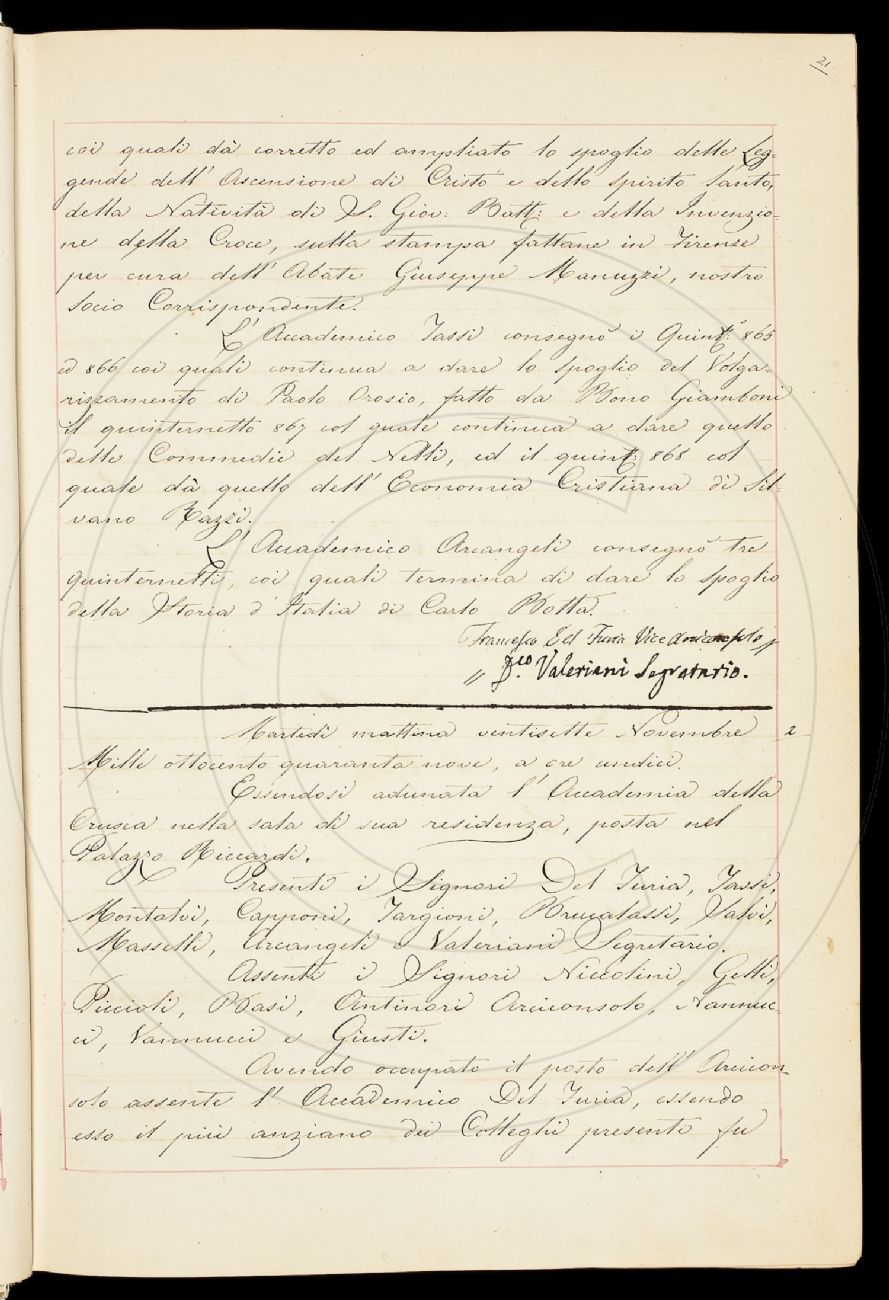 21
coi quali dà corretto ed ampliato lo spoglio delle Leg-
gende dell' Ascensione di Cristo e dello Spirito Santo,
della Natività di S. Giov: Batt: e della Invenzio-
ne della Croce, sulla stampa fattane in Firenze
per cura dell' Abate Giuseppe Manuzzi, nostro
Socio Corrispondente.
L' Accademico Tassi consegnò i Quint:ⁱ 865
ed 866 coi quali continua a dare lo spoglio del Volga-
rizzamento di Paolo Orosio, fatto da Bono Giamboni
il quinternetto 867 col quale continua a dare quello
delle Commedie del Nelli, ed il quint: 868 col
quale dà quello dell' Economia Cristiana di Sil-
vano Razzi.
L' Accademico Arcangeli consegnò tre
quinternetti, coi quali termina di dare lo spoglio
della Storia d' Italia di Carlo Botta.
Francesco Del Furia Vice Arciconsolo
" F.co Valeriani Segretario.
Martedì mattina ventisette Novembre 2
Mille ottocento quaranta nove, a ore undici.
Essendosi adunata l' Accademia della
Crusca nella sala di sua residenza, posta nel
Palazzo Riccardi.
Presenti i Signori Del Furia, Tassi,
Montalvi, Capponi, Targioni, Brucalassi, Salvi,
Masselli, Arcangeli e Valeriani Segretario.
Assenti i Signori Niccolini, Gelli,
Piccioli, Basi, Antinori Arciconsolo, Nannuc-
ci, Vannucci e Giusti.
Avendo occupato il posto dell' Arcicon-
solo assente l' Accademico Del Furia, essendo
esso il più anziano dei Colleghi presenti fu